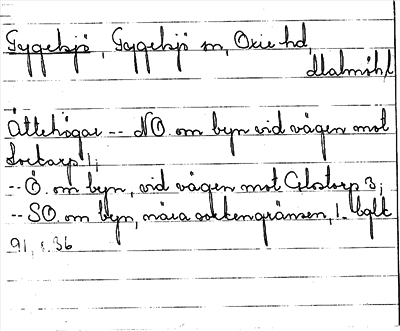 Gygelsjö, Gygelsjö sn, Oxie hd,
Malmöhl
Ättehögar -- NO. om byn vid vägen mot
Lockarp 1;
-- Ö. om byn, vid vägen mot Glostorp 3;
-- SO. om byn, nära sockengränsen, 1. Ubglt
91, s. 36